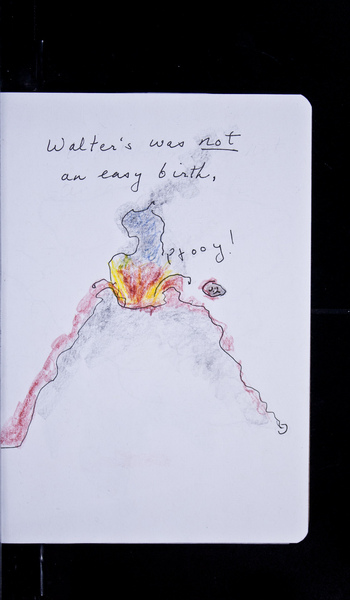 Walter's was not
an easy birth,
ptooy!